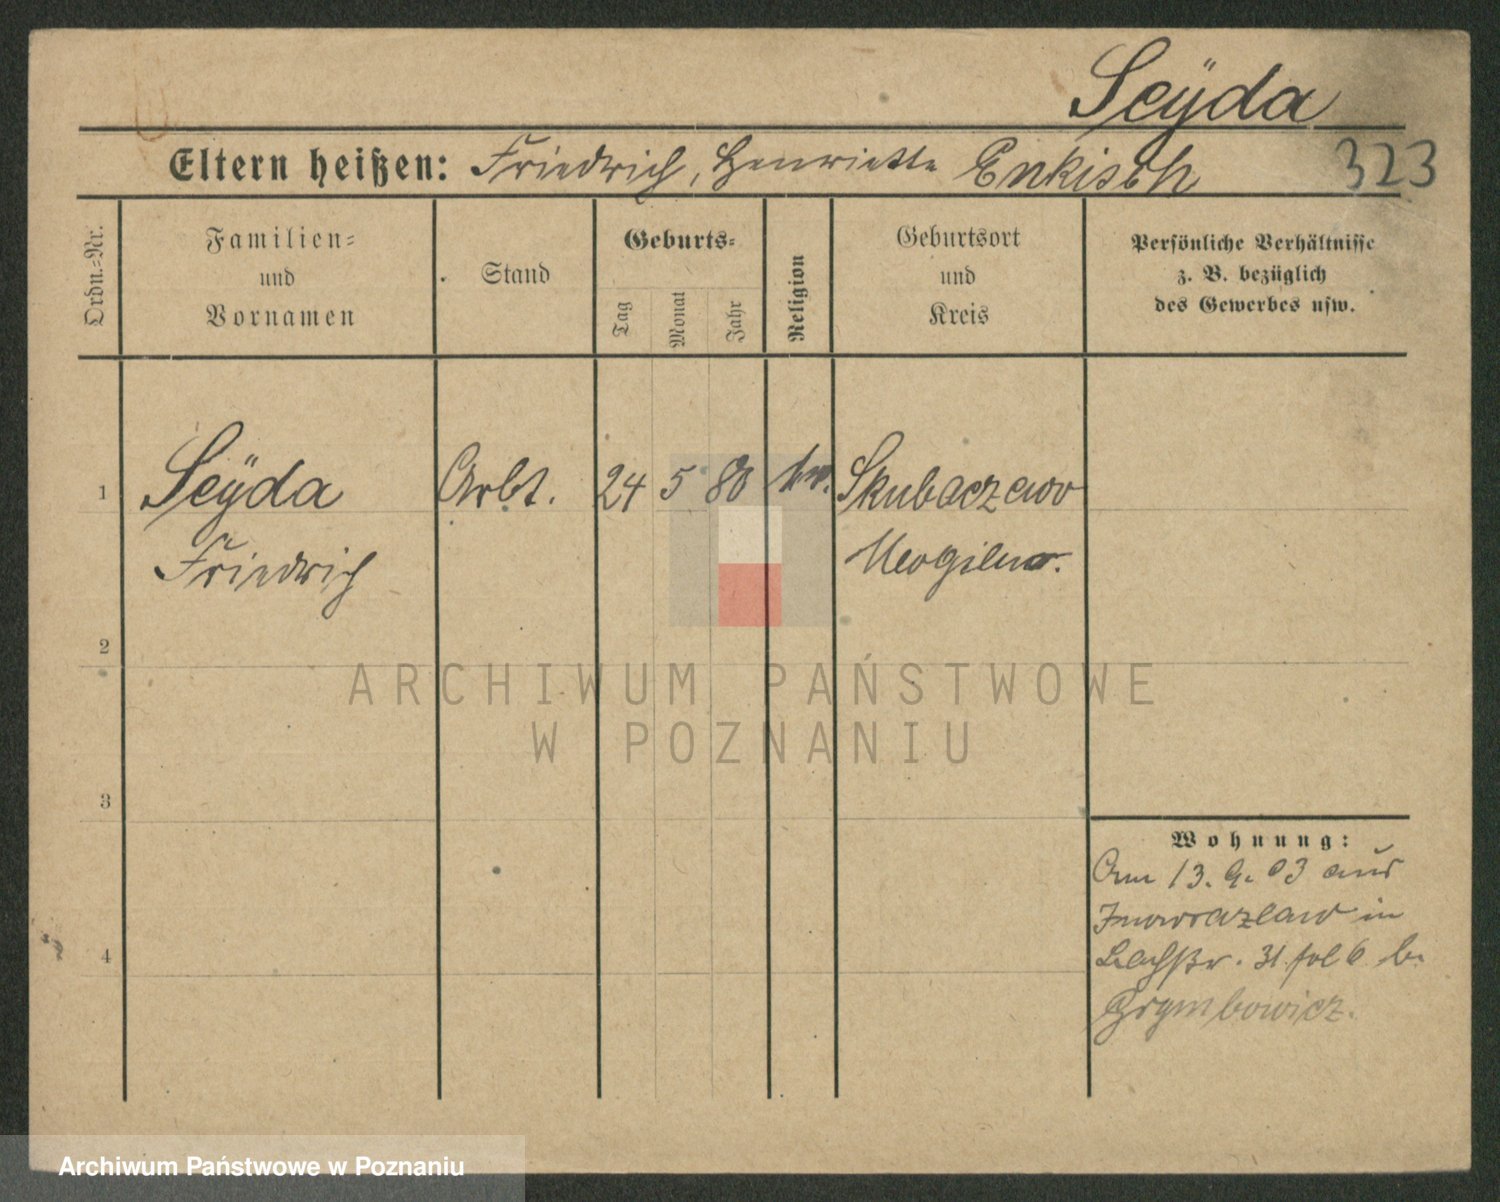 Seÿda
Eltern heißen: Friedrich, Henriette Enkisch
323
Ordn.=Nr.
Familien=
und
Vornamen
Stand
Geburts=
Tag
Monat
Jahr
Religion
Geburtsort
und
Kreis
Persönliche Verhältnisse
z. B. bezüglich
des Gewerbes usw.
1
Seÿda
Friedrich
Arbt.
24
5
80
Skubaczewo
Mogilno.
2
3
4
Wohnung:
Am 13. 9. 03 aus
Inowrazlaw in
31 fol 6 b.
Grymbowicz.
ARCHIWUM PAŃSTWOWE
W POZNANIU
Archiwum Państwowe w Poznaniu